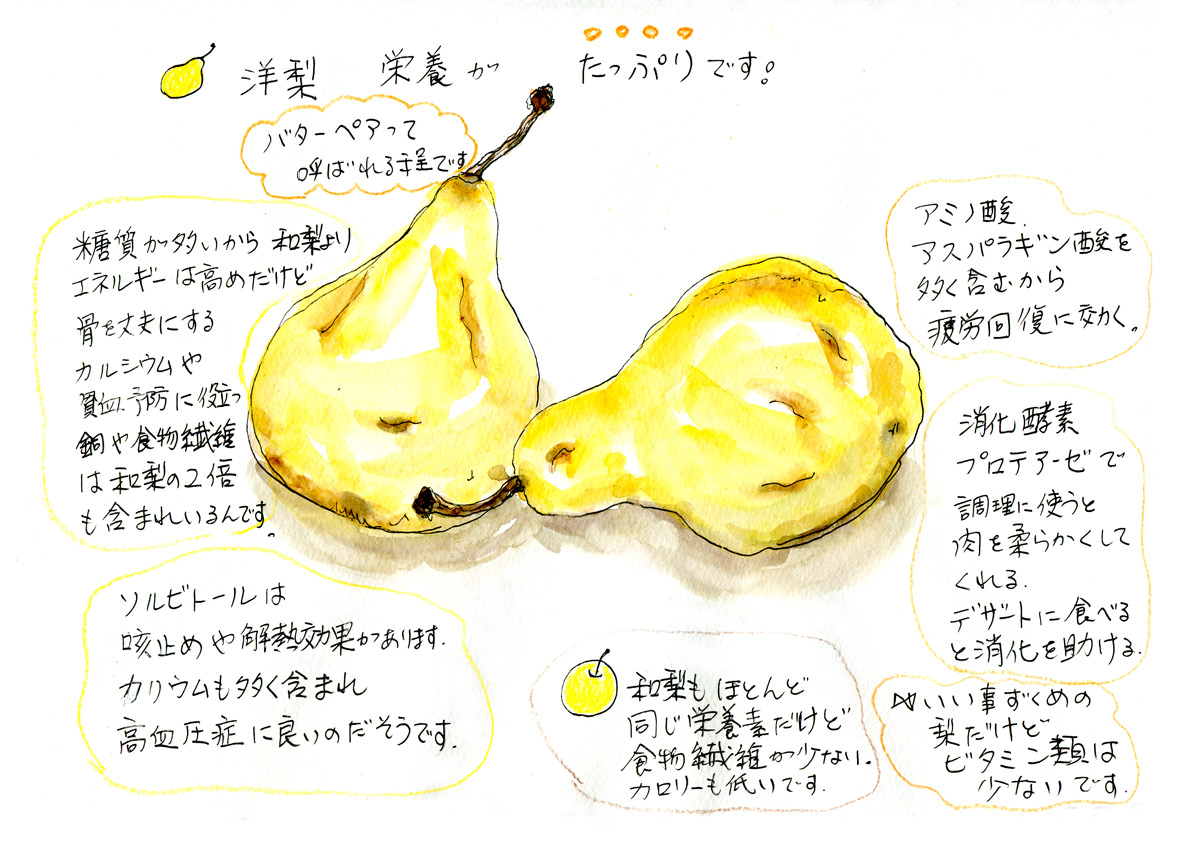 洋梨 栄養が たっぷりです!
バターペアって
呼ばれる程です
糖質が多いから 和梨より
エネルギーは高めだけど
骨を丈夫にする
カルシウムや
貧血予防に役立つ
銅や食物繊維
は和梨の2倍
も含まれいるんです。
ソルビトールは
咳止めや解熱効果があります.
カリウムも多く含まれ
高血圧症に良いのだそうです.
アミノ酸.
アスパラギン酸を
多く含むから
疲労回復に効く。
消化酵素
プロテアーゼで
調理に使うと
肉を柔らかくして
くれる.
デザートに食べる
と消化を助ける.
和梨もほとんど
同じ栄養素だけど
食物繊維が少ない。
カロリーも低いです.
いい事ずくめの
梨だけど
ビタミン類は
少ないです.